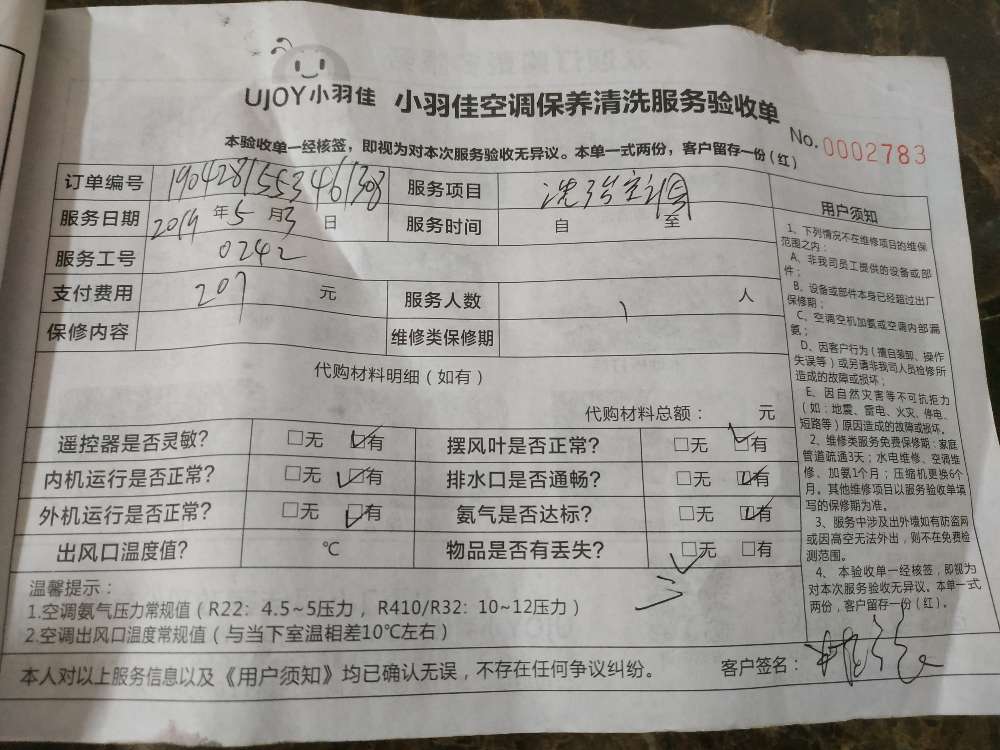 UJOY小羽佳 小羽佳空调保养清洗服务验收单
No. 0002783
本验收单一经核签，即视为对本次服务验收无异议。本单一式两份，客户留存一份(红)
订单编号 1904281553461308 服务项目
服务日期 2019 年 5 月 3 日 服务时间 自 至
服务工号 0242
支付费用 207 元 服务人数 1 人
保修内容 维修类保修期
代购材料明细（如有）
代购材料总额： 元
遥控器是否灵敏？ □无 □有 摆风叶是否正常？ □无 □有
内机运行是否正常？ □无 □有 排水口是否通畅？ □无 □有
外机运行是否正常？ □无 □有 氨气是否达标？ □无 □有
出风口温度值？ ℃ 物品是否有丢失？ □无 □有
温馨提示：
1.空调氨气压力常规值（R22：4.5~5压力，R410/R32：10~12压力）
2.空调出风口温度常规值（与当下室温相差10℃左右）
本人对以上服务信息以及《用户须知》均已确认无误，不存在任何争议纠纷。 客户签名：
用户须知
1、下列情况不在维修项目的维保
范围之内：
A、非我司员工提供的设备或部
件；
B、设备或部件本身已经超过出厂
保修期；
C、空调空机加氨或空调内部漏
氨；
D、因客户行为（擅自装卸、操作
失误等）或另请非我司人员检修所
造成的故障或损坏；
E、因自然灾害等不可抗拒力
（如：地震、雷电、火灾、停电、
短路等）原因造成的故障或损坏。
2、维修类服务免费保修期：家庭
管道疏通3天；水电维修、空调维
修、加氨1个月；压缩机更换6个
月。其他维修项目以服务验收单填
写的保修期为准。
3、服务中涉及出外墙如有防盗网
或因高空无法外出，则不在免费检
测范围。
4、本验收单一经核签，即视为
对本次服务验收无异议。本单一式
两份，客户留存一份（红）。